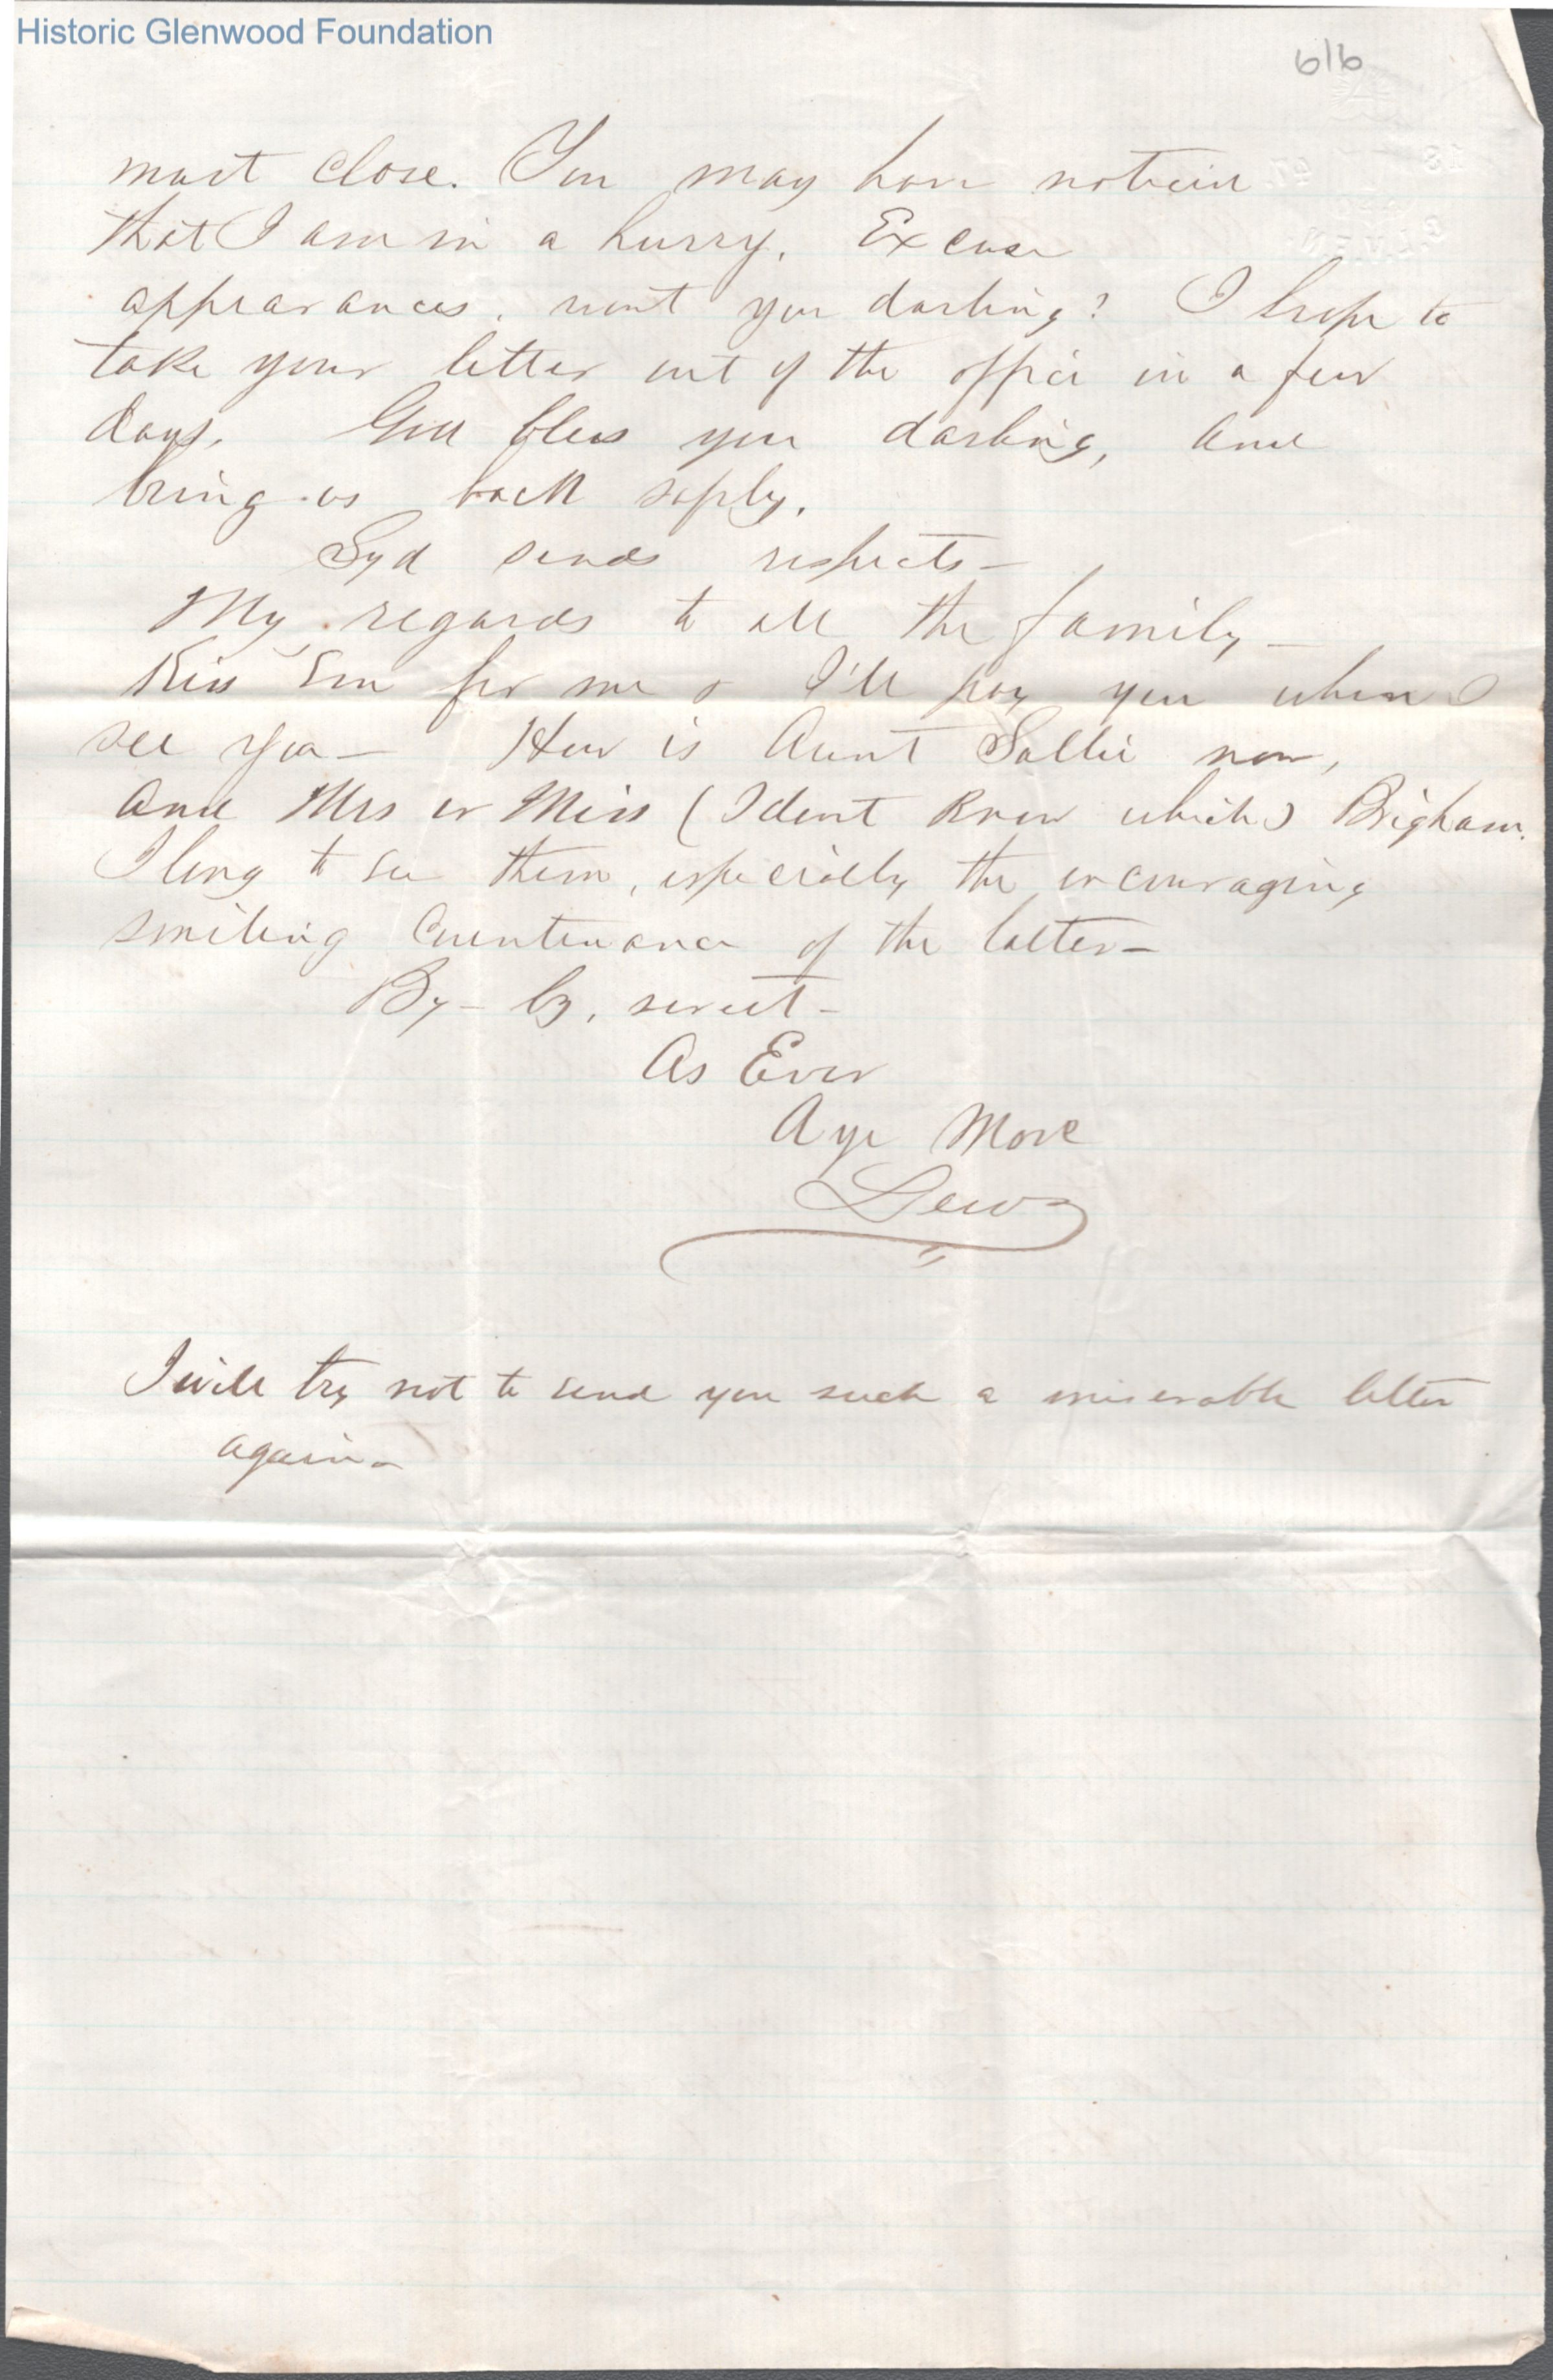 Historic Glenwood Foundation
6/6
must close. You may have noticed
that I am in a hurry. Excuse
appearances, wont you darling? I hope to
take your letter out of the office in a few
days. God bless you darling, and
bring us back safely.
Syd sends respects—
My regards to all the family—
Kiss Em for me & I'll pay you when I
see you— How is Aunt Sallie now,
and Mrs or Miss (I dont know which) Brigham.
I long to see them, especially the encouraging
smiling countenance of the latter—
By-by, sweet—
As Ever
Aye More
Lew
I will try not to send you such a miserable letter
again—